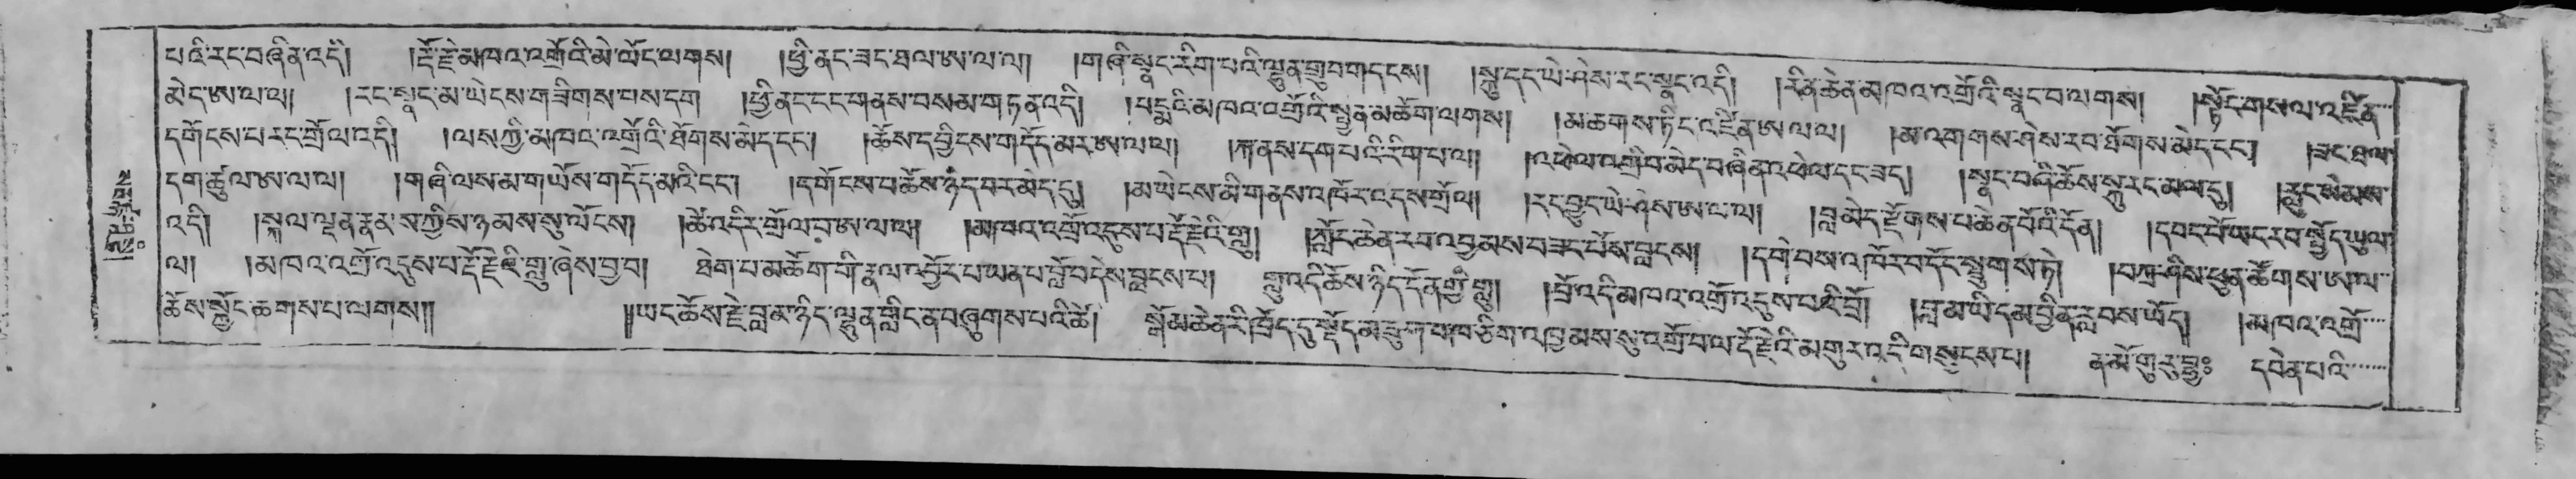 པའི་རང་བཞིན་འདི། །རྡོ་རྗེ་མཁའ་འགྲོའི་མེ་ལོང་ལགས། །ཕྱི་ནང་ཟང་ཐལ་ཨ་ལ་ལ། །གཞི་སྣང་རིག་པའི་ལྷུན་གྲུབ་གདངས། །སྐུ་དང་ཡེ་ཤེས་རང་སྣང་འདི། །རིན་ཆེན་མཁའ་འགྲོའི་སྣང་བ་ལགས། །སྟོང་གསལ་འཛིན་
མེད་ཨ་ལ་ལ། །རང་སྣང་མ་ཡེངས་གཟིགས་པས་དག །ཕྱི་ནང་དང་གནས་བསམ་གཏན་འདི། །པདྨའི་མཁའ་འགྲོའི་སྤྱན་མཆོག་ལགས། །མ་ཆགས་ཏིང་འཛིན་ཨ་ལ་ལ། །མ་འགགས་ཤེས་རབ་ཐོགས་མེད་དང་། །ཟང་ཐལ་
དགོངས་པ་རང་གྲོལ་འདི། །ལས་ཀྱི་མཁའ་འགྲོའི་ཐོགས་མེད་དང་། །ཆོས་དབྱིངས་གདོད་མར་ཨ་ལ་ལ། །ཀ་ནས་དག་པའི་རིག་པ་ལ། །འཕེལ་འགྲིབ་མེད་བཞིན་འཕེལ་དང་ཟད། །སྣང་བཞི་ཆོས་སྐུ་རང་མལ་དུ། །རླུང་སེམས་
དག་ཚུལ་ཨ་ལ་ལ། །གཞི་ལས་མ་གཡོས་གདོད་མའི་དང་། །དགོངས་པ་ཆོས་ཉིད་བར་མེད་དུ། །མ་ཡེངས་མི་གནས་འཁོར་འདས་གྲོལ། །རང་བྱུང་ཡེ་ཤེས་ཨ་ལ་ལ། །བླ་མེད་རྫོགས་པ་ཆེན་པོའི་དོན། །དབང་པོ་ཡང་རབ་སྤྱོད་ཡུལ་
འདི། །སྐལ་ལྡན་རྣམས་ཀྱིས་ཉམས་སུ་ལོངས། །ཚེ་འདིར་གྲོལ་བ་ཨ་ལ་ལ། །མཁའ་འགྲོ་འདུས་པ་རྡོ་རྗེའི་གླུ། །ཀློང་ཆེན་རབ་འབྱམས་བཟང་པོས་བླངས། །དགེ་བས་འཁོར་བ་དོང་སྤྲུགས་ཏེ། །བཀྲ་ཤིས་ཕུན་ཚོགས་ཨ་ལ་
ལ། །མཁའ་འགྲོ་འདུས་པ་རྡོ་རྗེའི་གླུ་ཞེས་བྱ་བ། ཐེག་པ་མཆོག་གི་རྣལ་འབྱོར་པ་ཡན་པ་བློ་བདེས་བླངས་པ། གླུ་འདི་ཆོས་ཉིད་དོན་གྱི་གླུ། །བྲོ་འདི་མཁའ་འགྲོ་འདུས་པའི་བྲོ། །བླ་མ་ཡི་དམ་བྱིན་རླབས་ཡོད། །མཁའ་འགྲོ་
ཆོས་སྐྱོང་ཆགས་པ་ལགས།། །།ཡང་ཆོས་རྗེ་བླ་མ་ཉིད་ལྷུན་གླིང་ན་བཞུགས་པའི་ཚེ། སྒོམ་ཆེན་རི་ཁྲོད་དུ་སྡོད་མ་ ཅིག་འཁྱམས་སུ་འགྲོ་བ་ལ་རྡོ་རྗེའི་མགུར་འདི་གསུངས་པ། ན་མོ་གུ་རུ་བྷྱཿ དབེན་པའི་